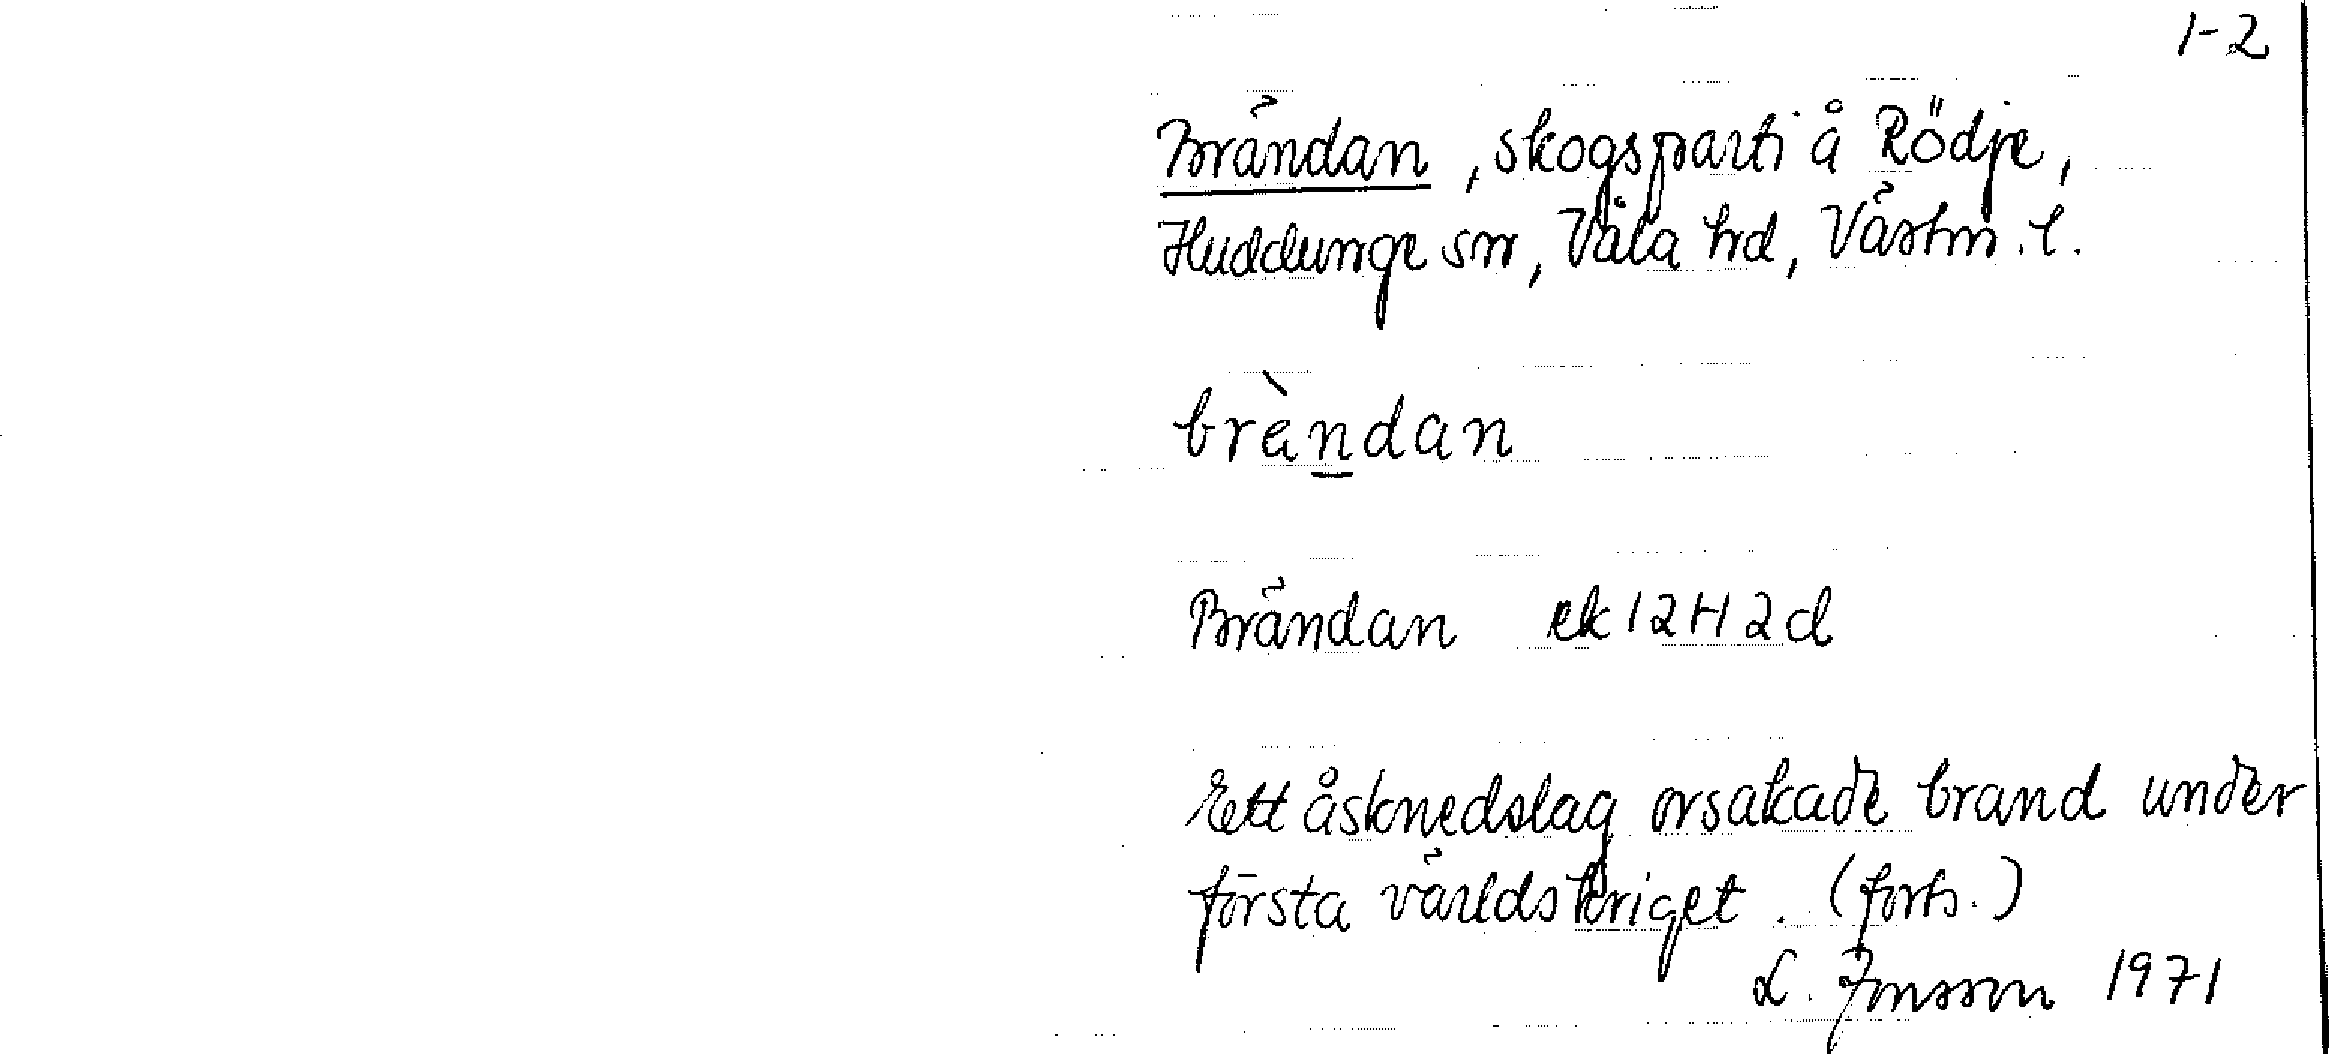 1-2
Brändan, skogsparti å Rödje,
Huddunge sn, Våla hd, Västm. l.
brèndan
Brändan ek 12H2d
Ett åsknedslag orsakade brand under
första världskriget. (forts.)
L. Jonsson 1971